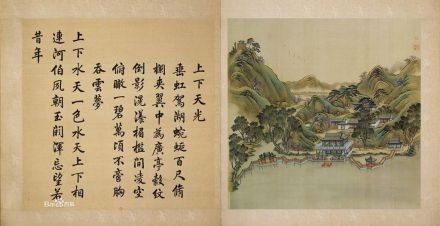 上下天光
垂虹駕湖蜿蜒百尺脩
欄夾翼中為廣亭縠紋
倒影滉瀁楣檻間凌空
俯瞰一碧萬頃不啻胸
吞雲夢
上下水天一色水天上下相
連河伯夙朝玉闕渾忘望若
昔年
Baidu百科